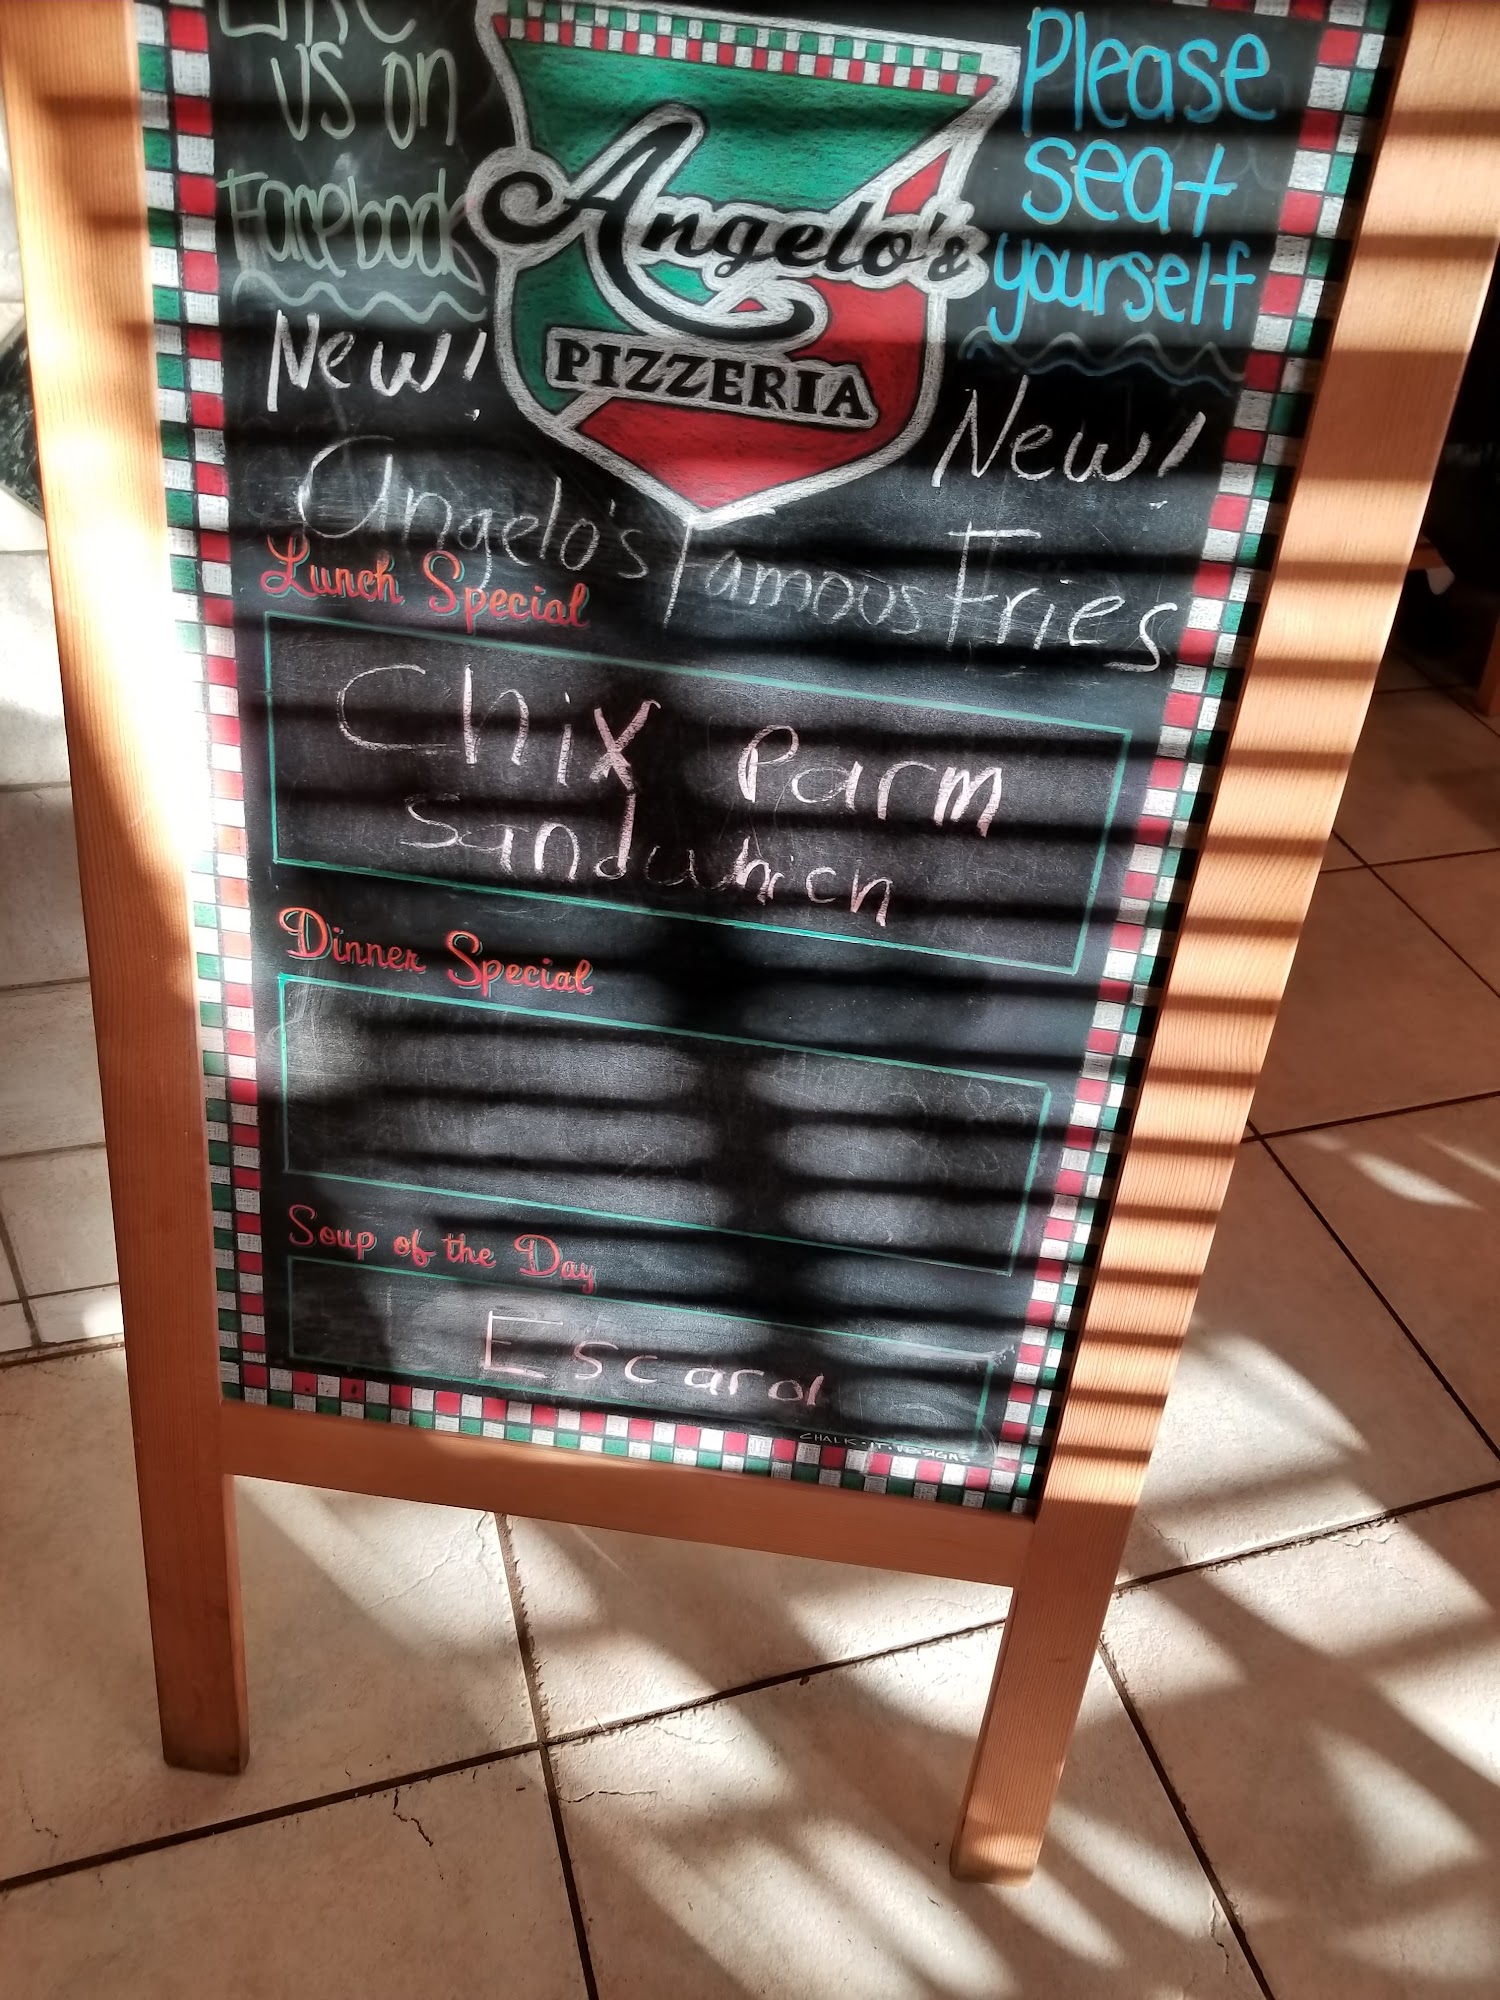 Like
us on
Facebook
Please
seat
yourself
Angelo's
PIZZERIA
New!
New!
Angelo's Famous Fries
Lunch Special
Chix Parm
Sandwhich
Dinner Special
Soup of the Day
Escarol
CHALK-IT-DESIGNS